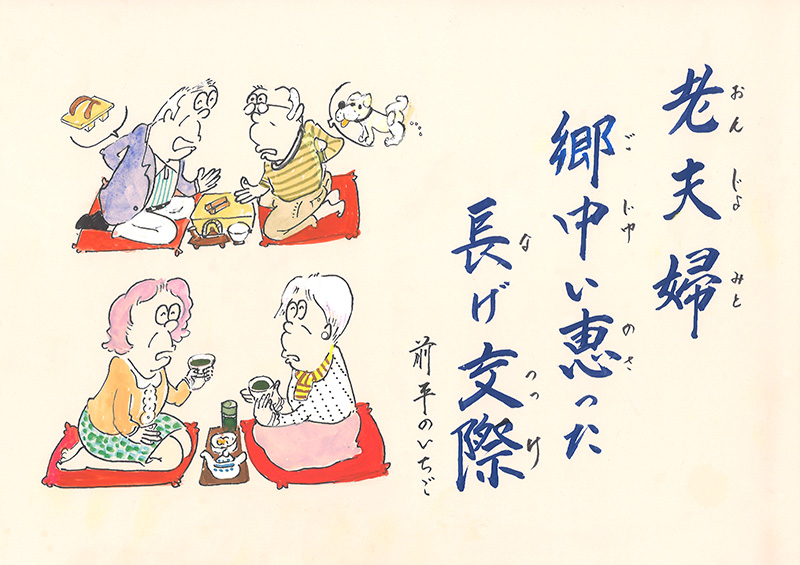 老夫婦
おんじょ みと
郷中い恵った
ごじゅ のさ
長げ交際
な つっけ
前平のいちご